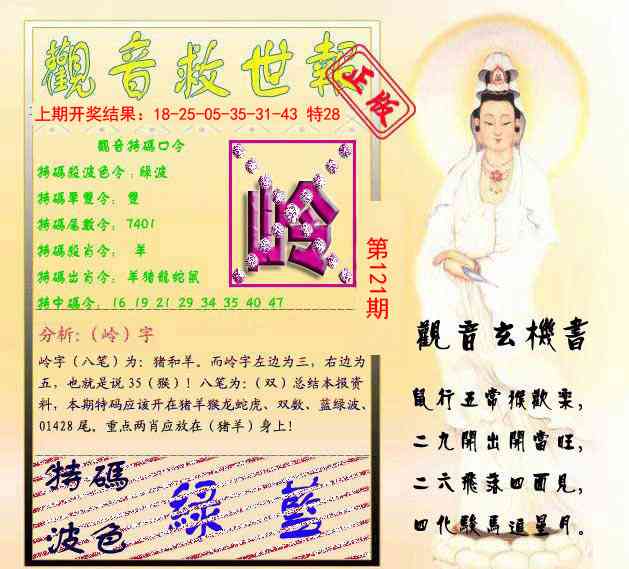 觀音救世報
正版
上期开奖结果：18-25-05-35-31-43 特28
觀音特碼口令
特碼殺波色令：綠波
特碼單雙令： 雙
特碼尾數令： 7401
特碼殺肖令： 羊
特碼出肖令： 羊猪龍蛇鼠
特中碼令： 16 19 21 29 34 35 40 47
岭
第121期
分析:（岭）字
岭字（八笔）为：猪和羊。而岭字左边为三，右边为
五，也就是说 35（猴）！八笔为：（双）总结本报资
料，本期特码应该开在猪羊猴龙蛇虎、双数、蓝绿波、
01428 尾。重点两肖应放在（猪羊）身上！
特碼
波色
綠 藍
觀音玄機書
鼠行五常猴歡樂，
二九開出開當旺，
二六飛落四面見，
四化駿馬追星月。